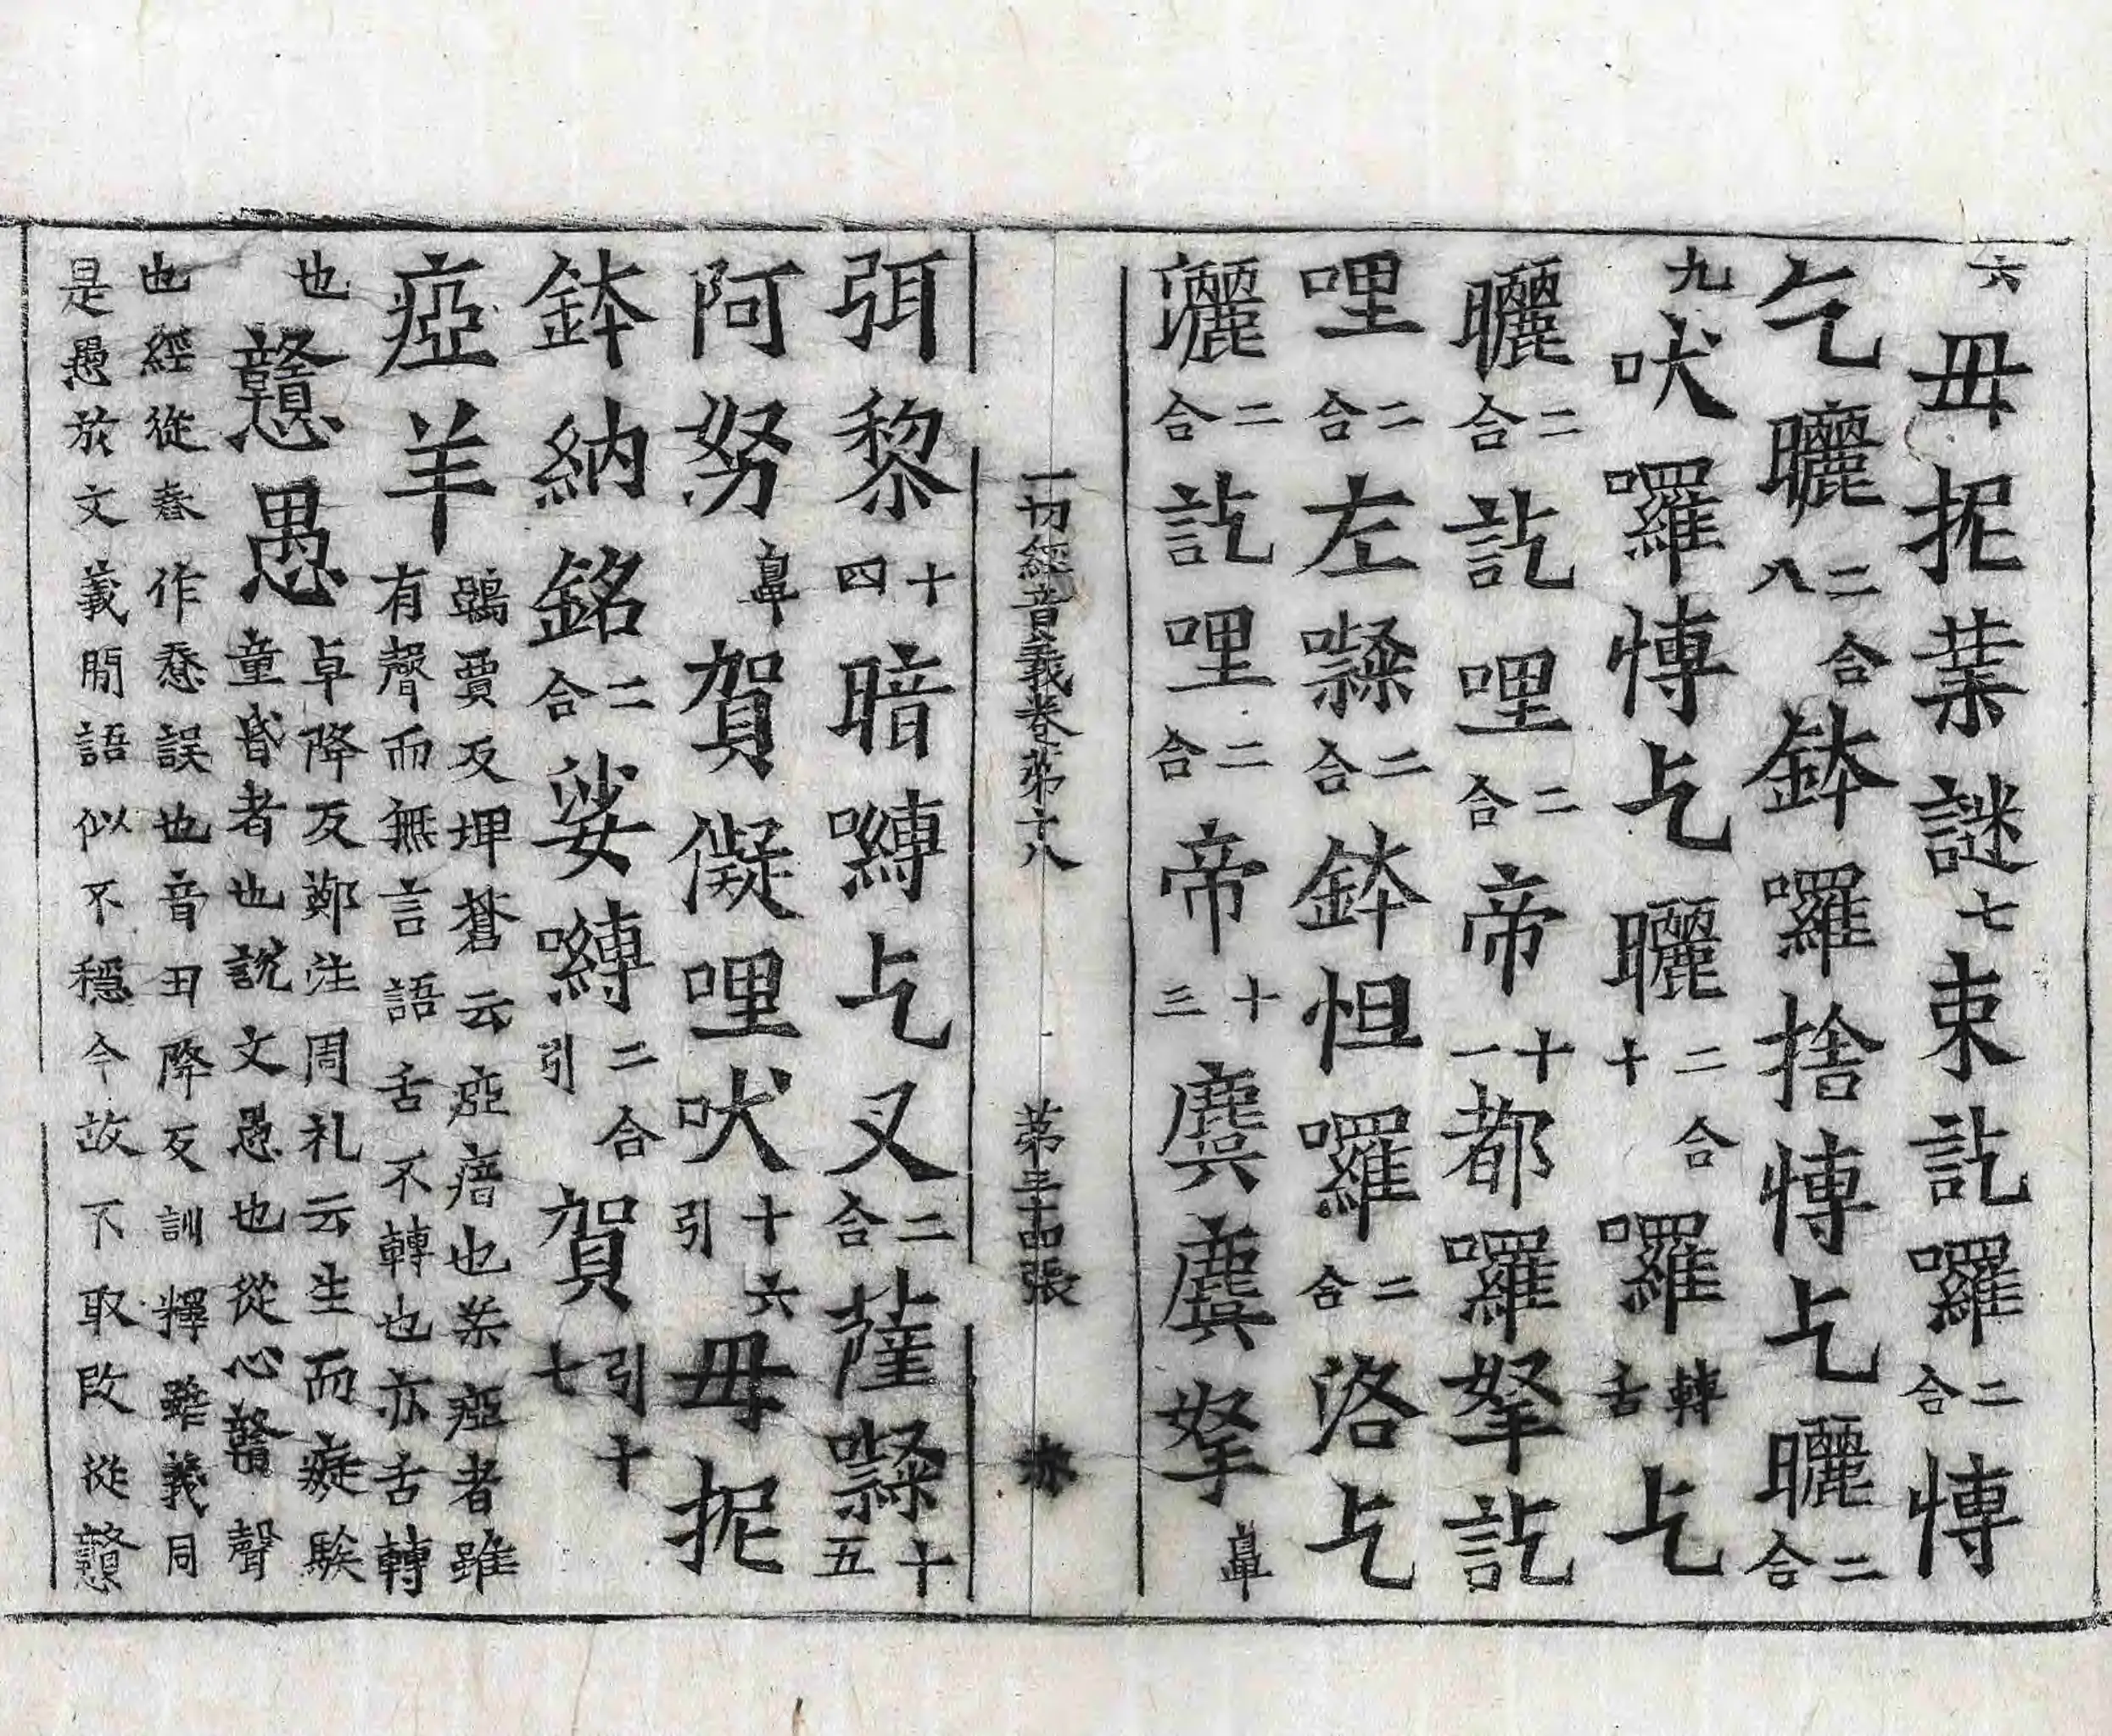 六毋抳葉謎七束訖囉二合愽
乞曬二合八鉢囉捨愽乞曬二合
九吠囉愽乞曬二合十囉轉舌乞
曬二合訖哩二合帝十一都囉拏訖
哩二合左㘑二合鉢怛囉二合洛乞
灑二合訖哩二合帝十三麌麌拏鼻
一切經音義卷第十八 第三十四張 赤
弭黎十四暗嚩乞叉二合薩㘑十五
阿努鼻賀儗哩吠十六引毋抳
鉢納銘二合娑嚩二合引賀引十七
瘂羊鵶賈反埤蒼云瘂瘖也案瘂者雖有聲而無言語舌不轉也亦舌轉
也戇愚卓降反鄭注周礼云生而癡騃童昏者也說文愚也從心贛聲
也經從舂作憃誤也音丑降反訓釋雖義同
是愚於文義間語似不穩今故下取改從戇